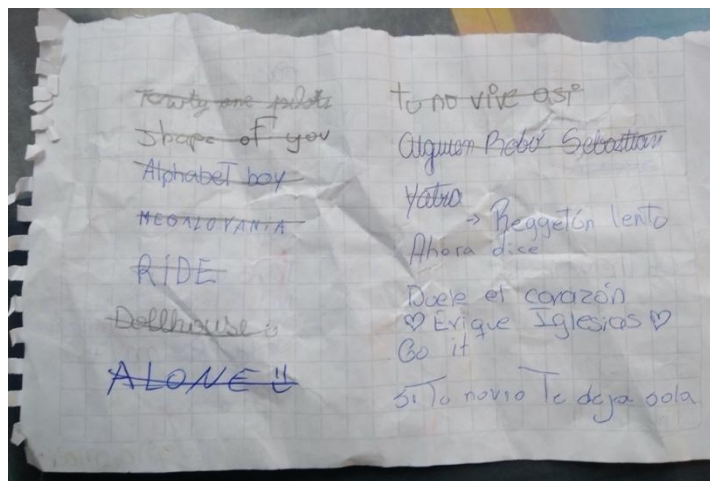 Towty one pilots
shape of you
Alphabet boy
MEGALOVANIA
RIDE
Dollhouse
ALONE
tu no vive asi
Alguien Robó Sebastian
Yatra
→ Reggetón lento
Ahora dice
Duele el corazón
♡ Erique Iglesias ♡
Go it
Si Tu novio Te deja sola